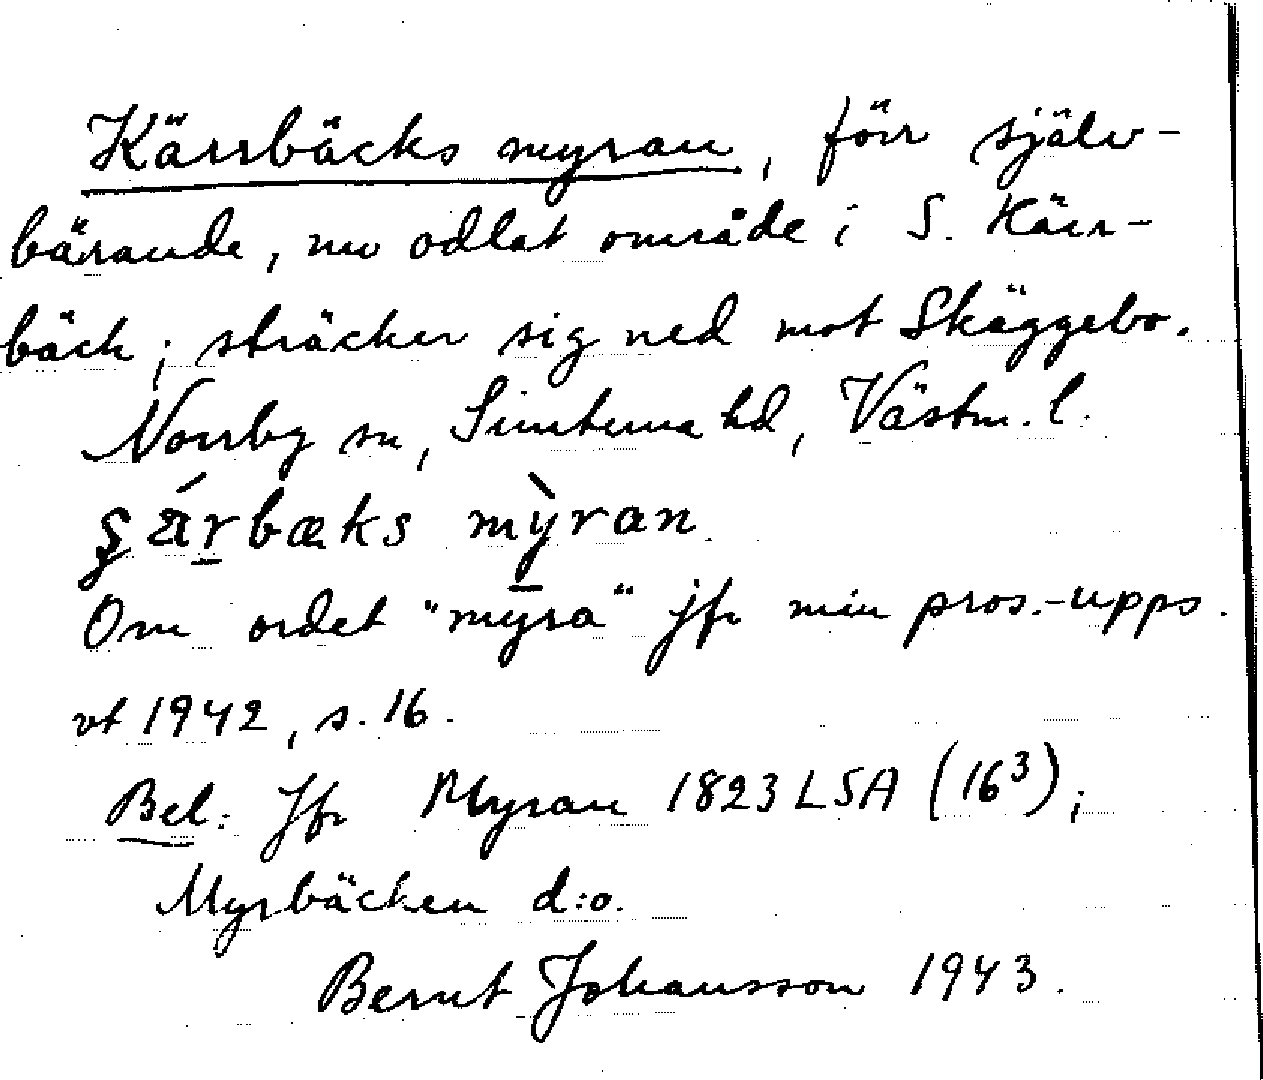 Kärrbäcks myran, förr själv-
bärande, nu odlat område i S. Kärr-
bäck; sträcker sig ned mot Skäggebo.
Norrby sn, Simtuna hd, Västm. l.
mỳran
Om ordet "myra" jfr min pros.-upps.
vt 1942, s. 16.
Bel: Jfr Myran 1823 LSA (16³);
Myrbäcken d:o.
Bernt Johansson 1943.